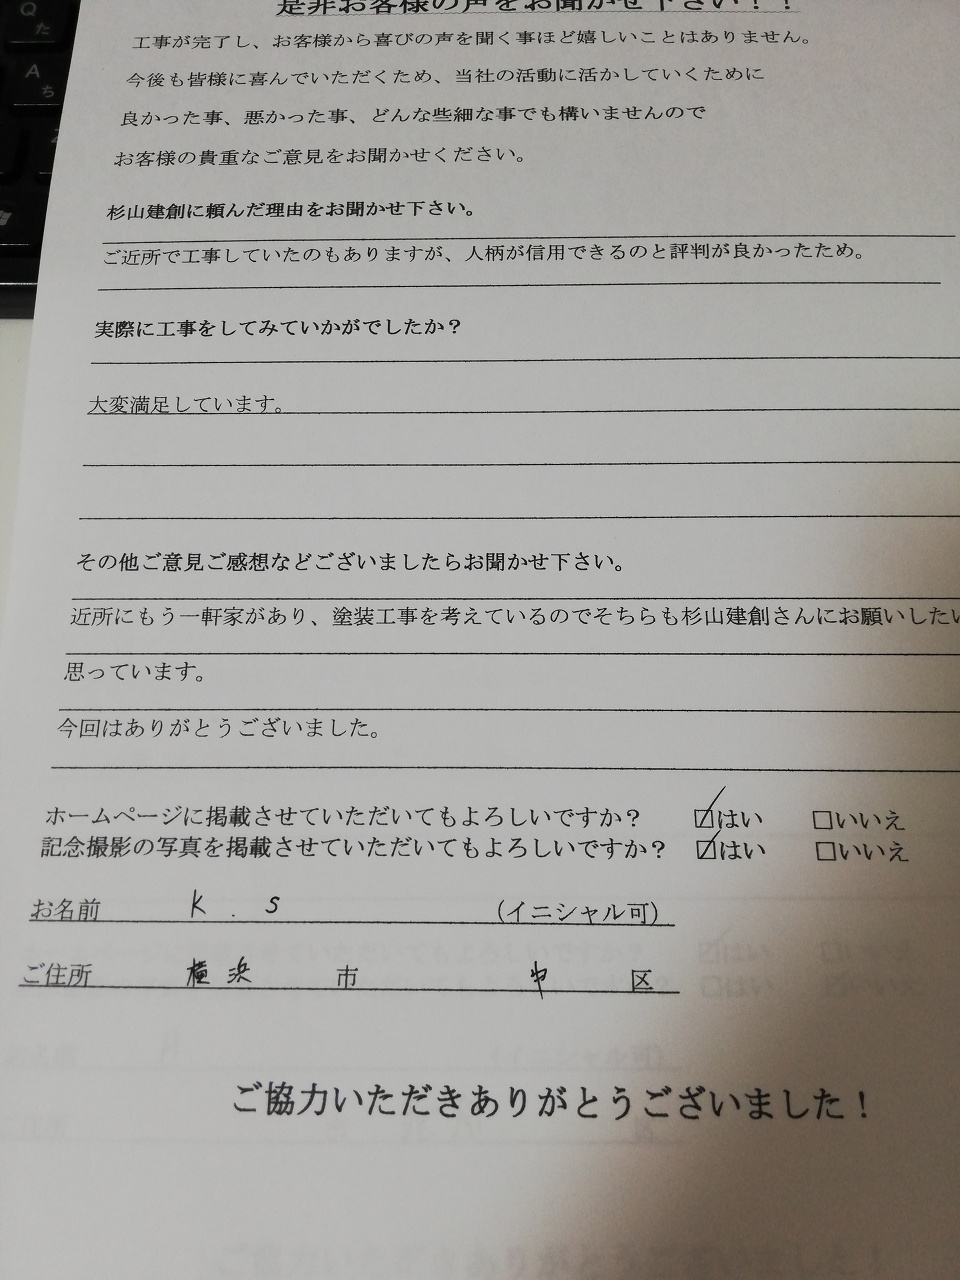 是非お客様の声をお聞かせ下さい！！
工事が完了し、お客様から喜びの声を聞く事ほど嬉しいことはありません。
今後も皆様に喜んでいただくため、当社の活動に活かしていくために
良かった事、悪かった事、どんな些細な事でも構いませんので
お客様の貴重なご意見をお聞かせください。
杉山建創に頼んだ理由をお聞かせ下さい。
ご近所で工事していたのもありますが、人柄が信用できるのと評判が良かったため。
実際に工事をしてみていかがでしたか？
大変満足しています。
その他ご意見ご感想などございましたらお聞かせ下さい。
近所にもう一軒家があり、塗装工事を考えているのでそちらも杉山建創さんにお願いしたい
思っています。
今回はありがとうございました。
ホームページに掲載させていただいてもよろしいですか？ ☑はい □いいえ
記念撮影の写真を掲載させていただいてもよろしいですか？ ☑はい □いいえ
お名前 K . S （イニシャル可）
ご住所 横浜 市 中 区
ご協力いただきありがとうございました！
Q た
A ち
Z